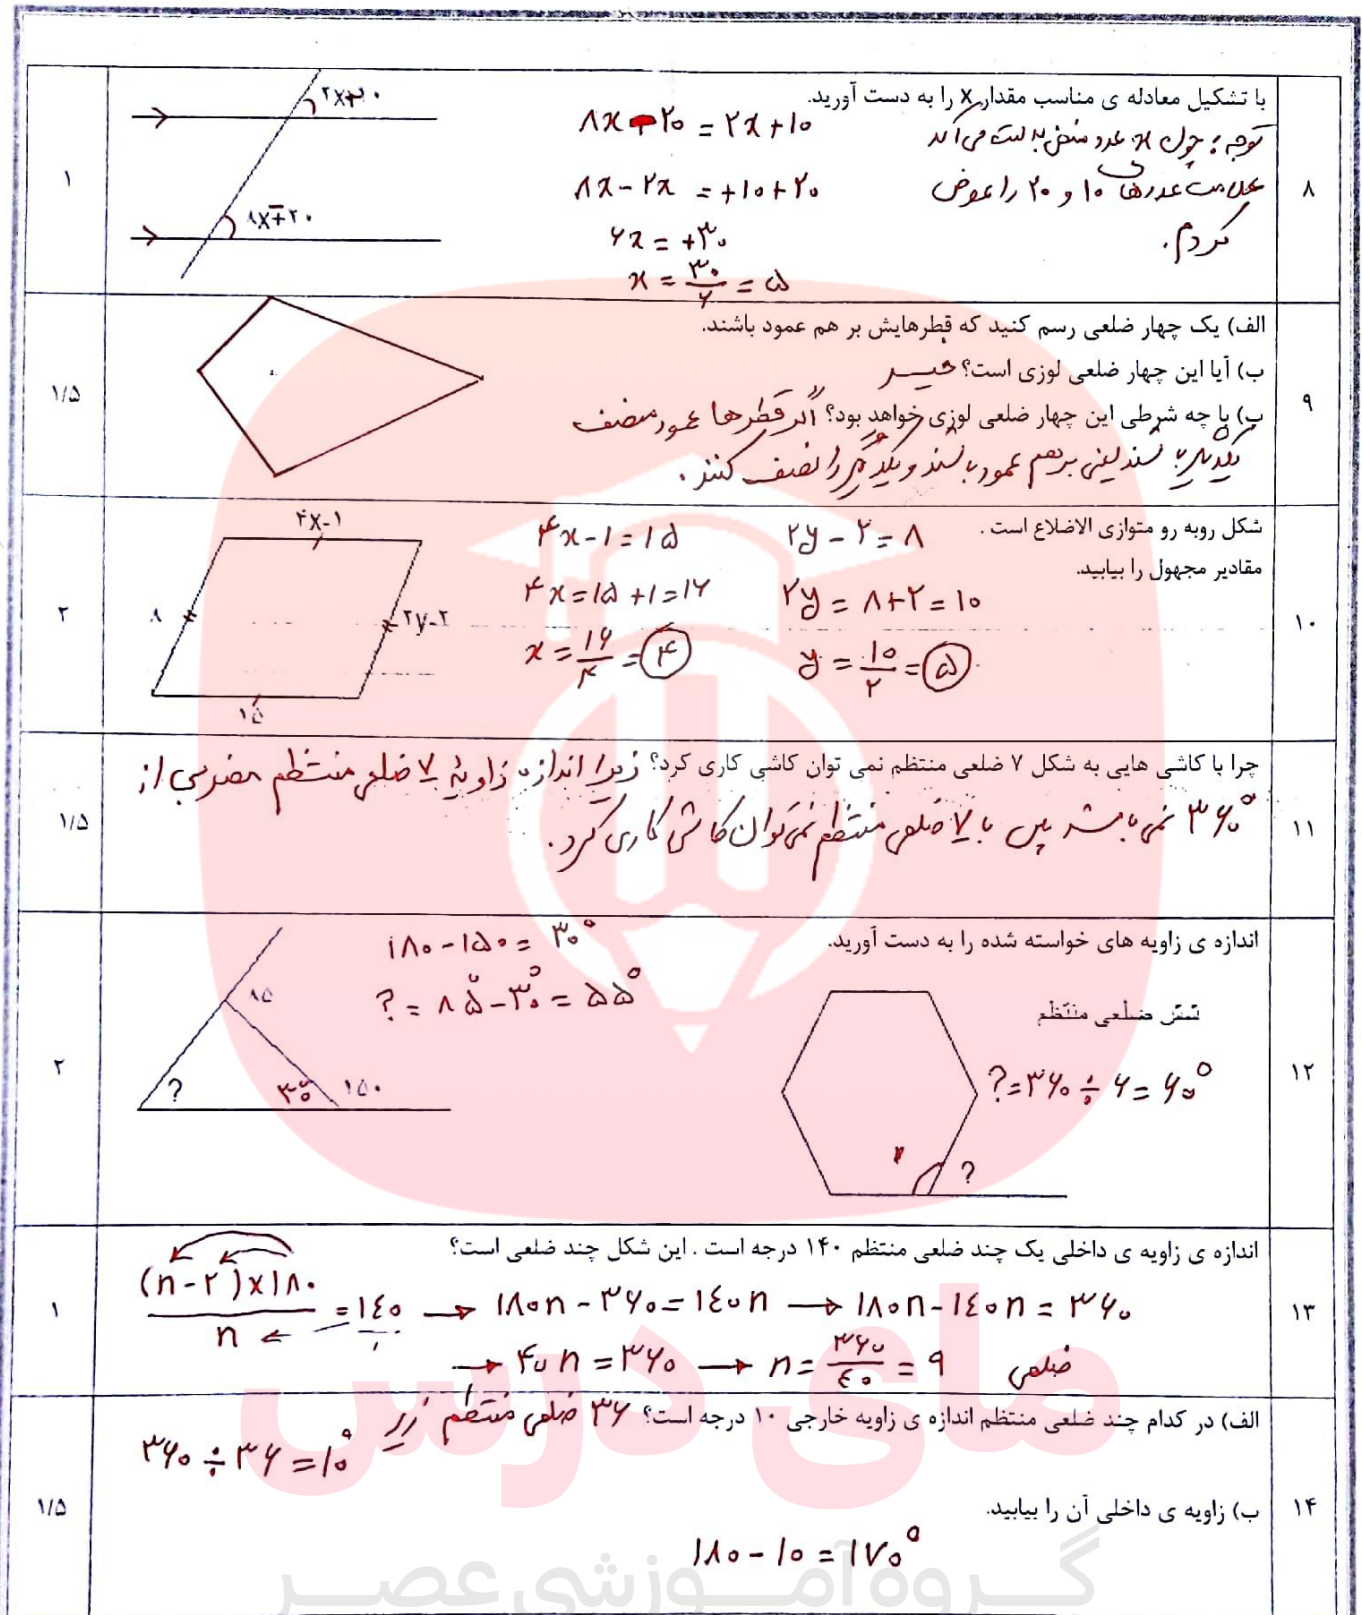 ۸
با تشکیل معادله ی مناسب مقدار x را به دست آورید.
توجه: چون x عدد منفی به دست می آمد
علامت عددهای ۱۰ و ۲۰ را عوض
کردم.
۸x - ۲۰ = ۲x + ۱۰
۸x - ۲x = +۱۰ + ۲۰
۶x = +۳۰
x = ۳۰/۶ = ۵
۸x - ۲۰
۱
۹
الف) یک چهار ضلعی رسم کنید که قطرهایش بر هم عمود باشند.
ب) آیا این چهار ضلعی لوزی است؟ خیر
پ) با چه شرطی این چهار ضلعی لوزی خواهد بود؟ اگر قطرها عمود منصف
یکدیگر باشند یعنی برهم عمود باشند و یکدیگر را نصف کنند.
۱/۵
۱۰
شکل روبه رو متوازی الاضلاع است.
مقادیر مجهول را بیابید.
۲y - ۲ = ۸
۲y = ۸ + ۲ = ۱۰
y = ۱۰/۲ = ۵
۴x - ۱ = ۱۵
۴x = ۱۵ + ۱ = ۱۶
x = ۱۶/۴ = ۴
۴x-۱
۸
۲y-۲
۱۵
۲
۱۱
چرا با کاشی هایی به شکل ۷ ضلعی منتظم نمی توان کاشی کاری کرد؟ زیرا اندازه زاویهٔ ۷ ضلعی منتظم مضربی از
۳۶۰° نمی باشد پس با ۷ ضلعی منتظم نمی توان کاشی کاری کرد.
۱/۵
۱۲
اندازه ی زاویه های خواسته شده را به دست آورید.
شش ضلعی منتظم
? = ۳۶۰ ÷ ۶ = ۶۰°
?
۱۸۰ - ۱۵۰ = ۳۰°
? = ۸۵° - ۳۰° = ۵۵°
۸۵
? ۳۰° ۱۵۰
۲
۱۳
اندازه ی زاویه ی داخلی یک چند ضلعی منتظم ۱۴۰ درجه است. این شکل چند ضلعی است؟
(n-۲)×۱۸۰/n = ۱۴۰/۱ → ۱۸۰n - ۳۶۰ = ۱۴۰n → ۱۸۰n - ۱۴۰n = ۳۶۰
→ ۴۰n = ۳۶۰ → n = ۳۶۰/۴۰ = ۹ ضلعی
۱
۱۴
الف) در کدام چند ضلعی منتظم اندازه ی زاویه خارجی ۱۰ درجه است؟ ۳۶ ضلعی منتظم زیرا
۳۶۰ ÷ ۳۶ = ۱۰°
ب) زاویه ی داخلی آن را بیابید.
۱۸۰ - ۱۰ = ۱۷۰°
۱/۵
مای درس
گروه آموزشی عصر